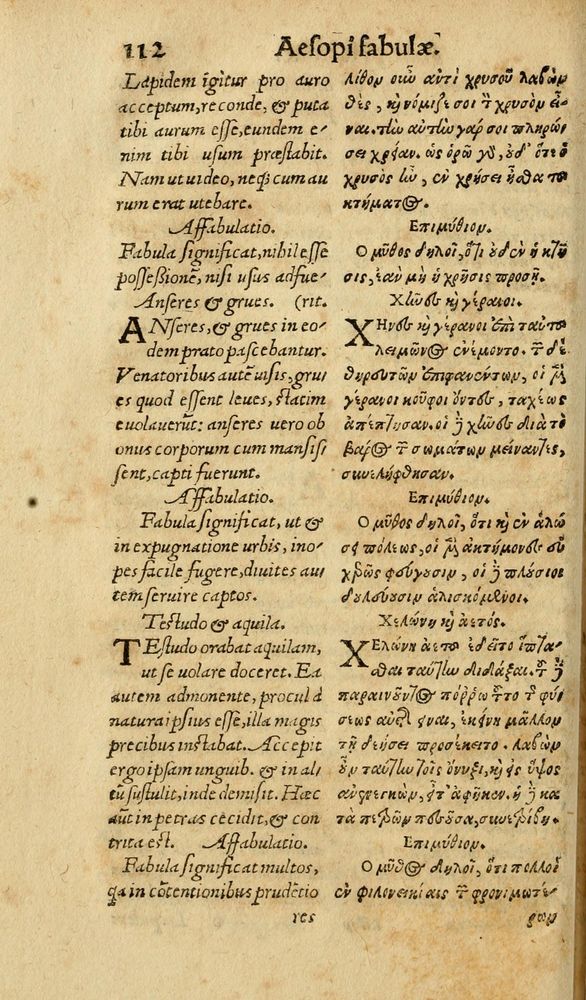 112 Aesopi fabulæ.
Lapidem igitur pro auro
acceptum, reconde, & puta
tibi aurum esse, eundem e-
nim tibi usum præstabit.
Nam ut uideo, neq; cum au
rum erat utebare.
Affabulatio.
Fabula significat, nihil esse
possessionẽ, nisi usus adfue-
Anseres & grues. (rit.
ANseres, & grues in eo-
dem prato pascebantur.
Venatoribus autẽ uisis, gru-
es quod essent leues, statim
euolauerũt: anseres uero ob
onus corporum cum mansis-
sent, capti fuerunt.
Affabulatio.
Fabula significat, ut &
in expugnatione urbis, ino-
pes facile fugere, diuites au-
tem seruire captos.
Testudo & aquila.
TEstudo orabat aquilam,
ut se uolare doceret. Ea
autem admonente, procul à
natura ipsius esse, illa magis
precibus instabat. Accepit
ergo ipsam unguib. & in al-
tũ sustulit, inde demisit. Hæc
aũt in petras cecidit, & con
trita est. Affabulatio.
Fabula significat multos,
qa in cõtentionibus prudẽtio
res
λίθον οὖν ἀντὶ χρυσοῦ λαβὼν
θὲς, καὶ νόμιζε σοι τὸν χρυσὸν εἶ-
ναι. τὴν αὐτὴν γάρ σοι πληρώ-
σει χρείαν. ὡς ὁρῶ γὰρ, οὐδ' ὅτε ὁ
χρυσὸς ἦν, ἐν χρήσει ἦσθα τοῦ
κτήματος.
Επιμύθιον.
Ο μῦθος δηλοῖ, ὅτι οὐδὲν ἡ κτῆ
σις, ἐὰν μὴ ἡ χρῆσις προσῇ.
Χῆνες καὶ γέρανοι.
ΧΗνες καὶ γέρανοι ἐπὶ ταὐτοῦ
λειμῶνος ἐνέμοντο. τῶν δὲ
θηρευτῶν ἐπιφανέντων, οἱ μὲν
γέρανοι κοῦφοι ὄντες, ταχέως
ἀπέπτησαν. οἱ δὲ χῆνες διὰ τὸ
βάρος τῶν σωμάτων μείναντες,
συνελήφθησαν.
Επιμύθιον.
Ο μῦθος δηλοῖ, ὅτι καὶ ἐν ἁλώ
σει πόλεως, οἱ μὲν ἀκτήμονες εὐ
χερῶς φεύγουσιν, οἱ δὲ πλούσιοι
δουλεύουσιν ἁλισκόμενοι.
Χελώνη καὶ ἀετός.
ΧΕλώνη ἀετοῦ ἐδεῖτο ἵπτα-
σθαι ταύτην διδάξαι. τοῦ δὲ
παραινοῦντος πόρρω τοῦτο τῆς φύ
σεως αὐτῆς εἶναι, ἐκείνη μᾶλλον
τῇ δεήσει προσέκειτο. λαβὼν
οὖν ταύτην τοῖς ὄνυξι, καὶ εἰς ὕψος
ἀνενεγκὼν, εἶτ' ἀφῆκεν. ἡ δὲ κα
τὰ πετρῶν πεσοῦσα, συνετρίβη.
Επιμύθιον.
Ο μῦθος δηλοῖ, ὅτι πολλοὶ
ἐν φιλονεικίαις τῶν φρονιμωτέ-
ρων